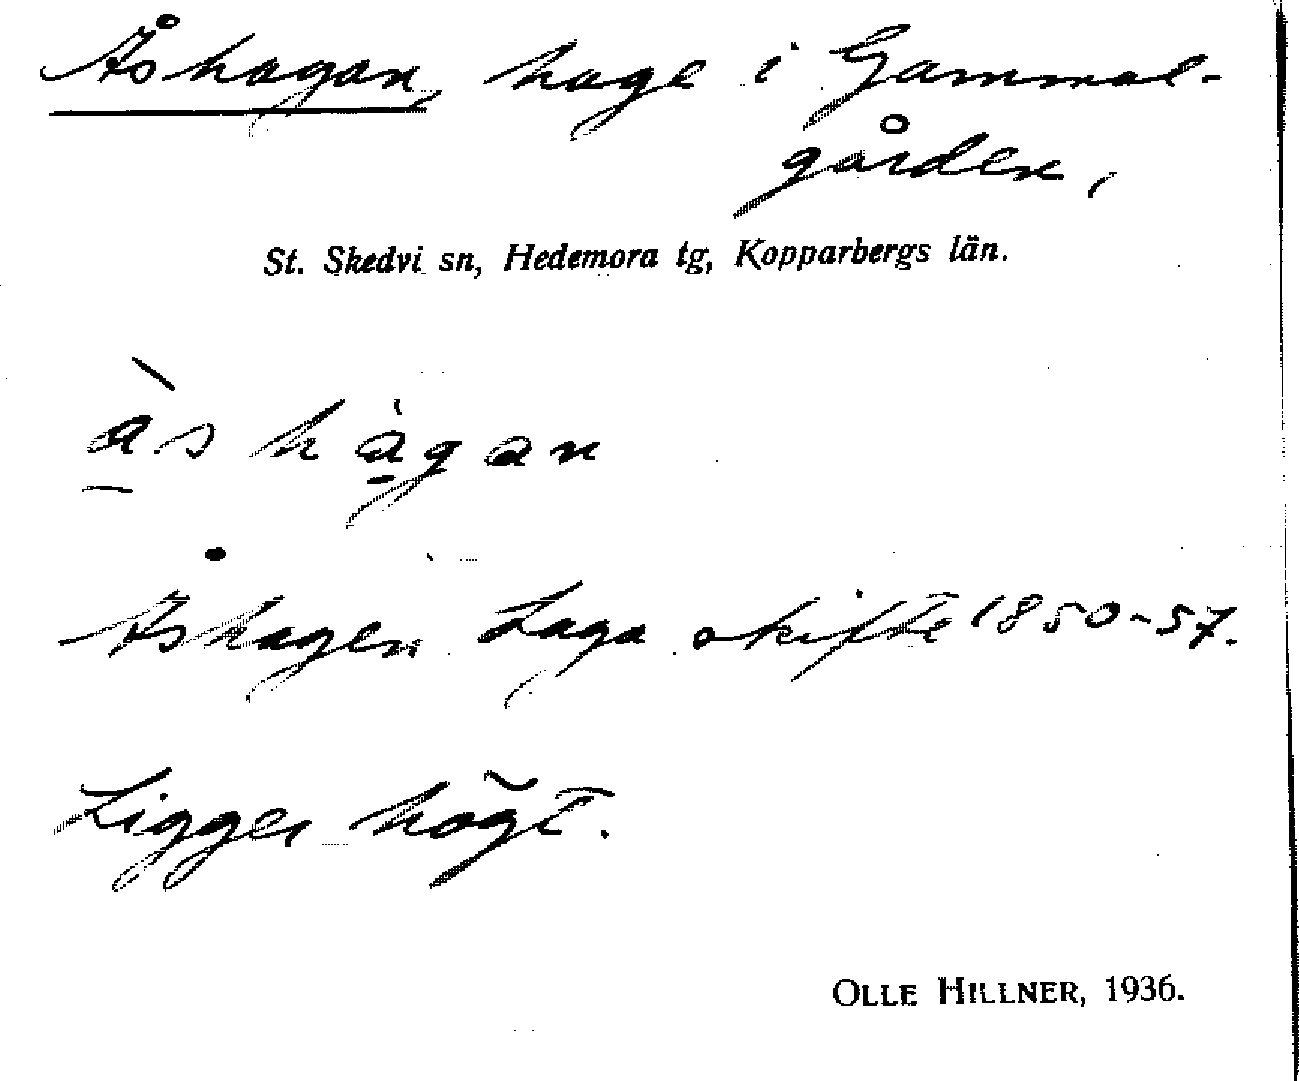 Åshagan, hage i Gammal-
gården,
St. Skedvi sn, Hedemora tg, Kopparbergs län.
às hàgan
Åshagen Laga skifte 1850-57.
Ligger högt.
OLLE HILLNER, 1936.